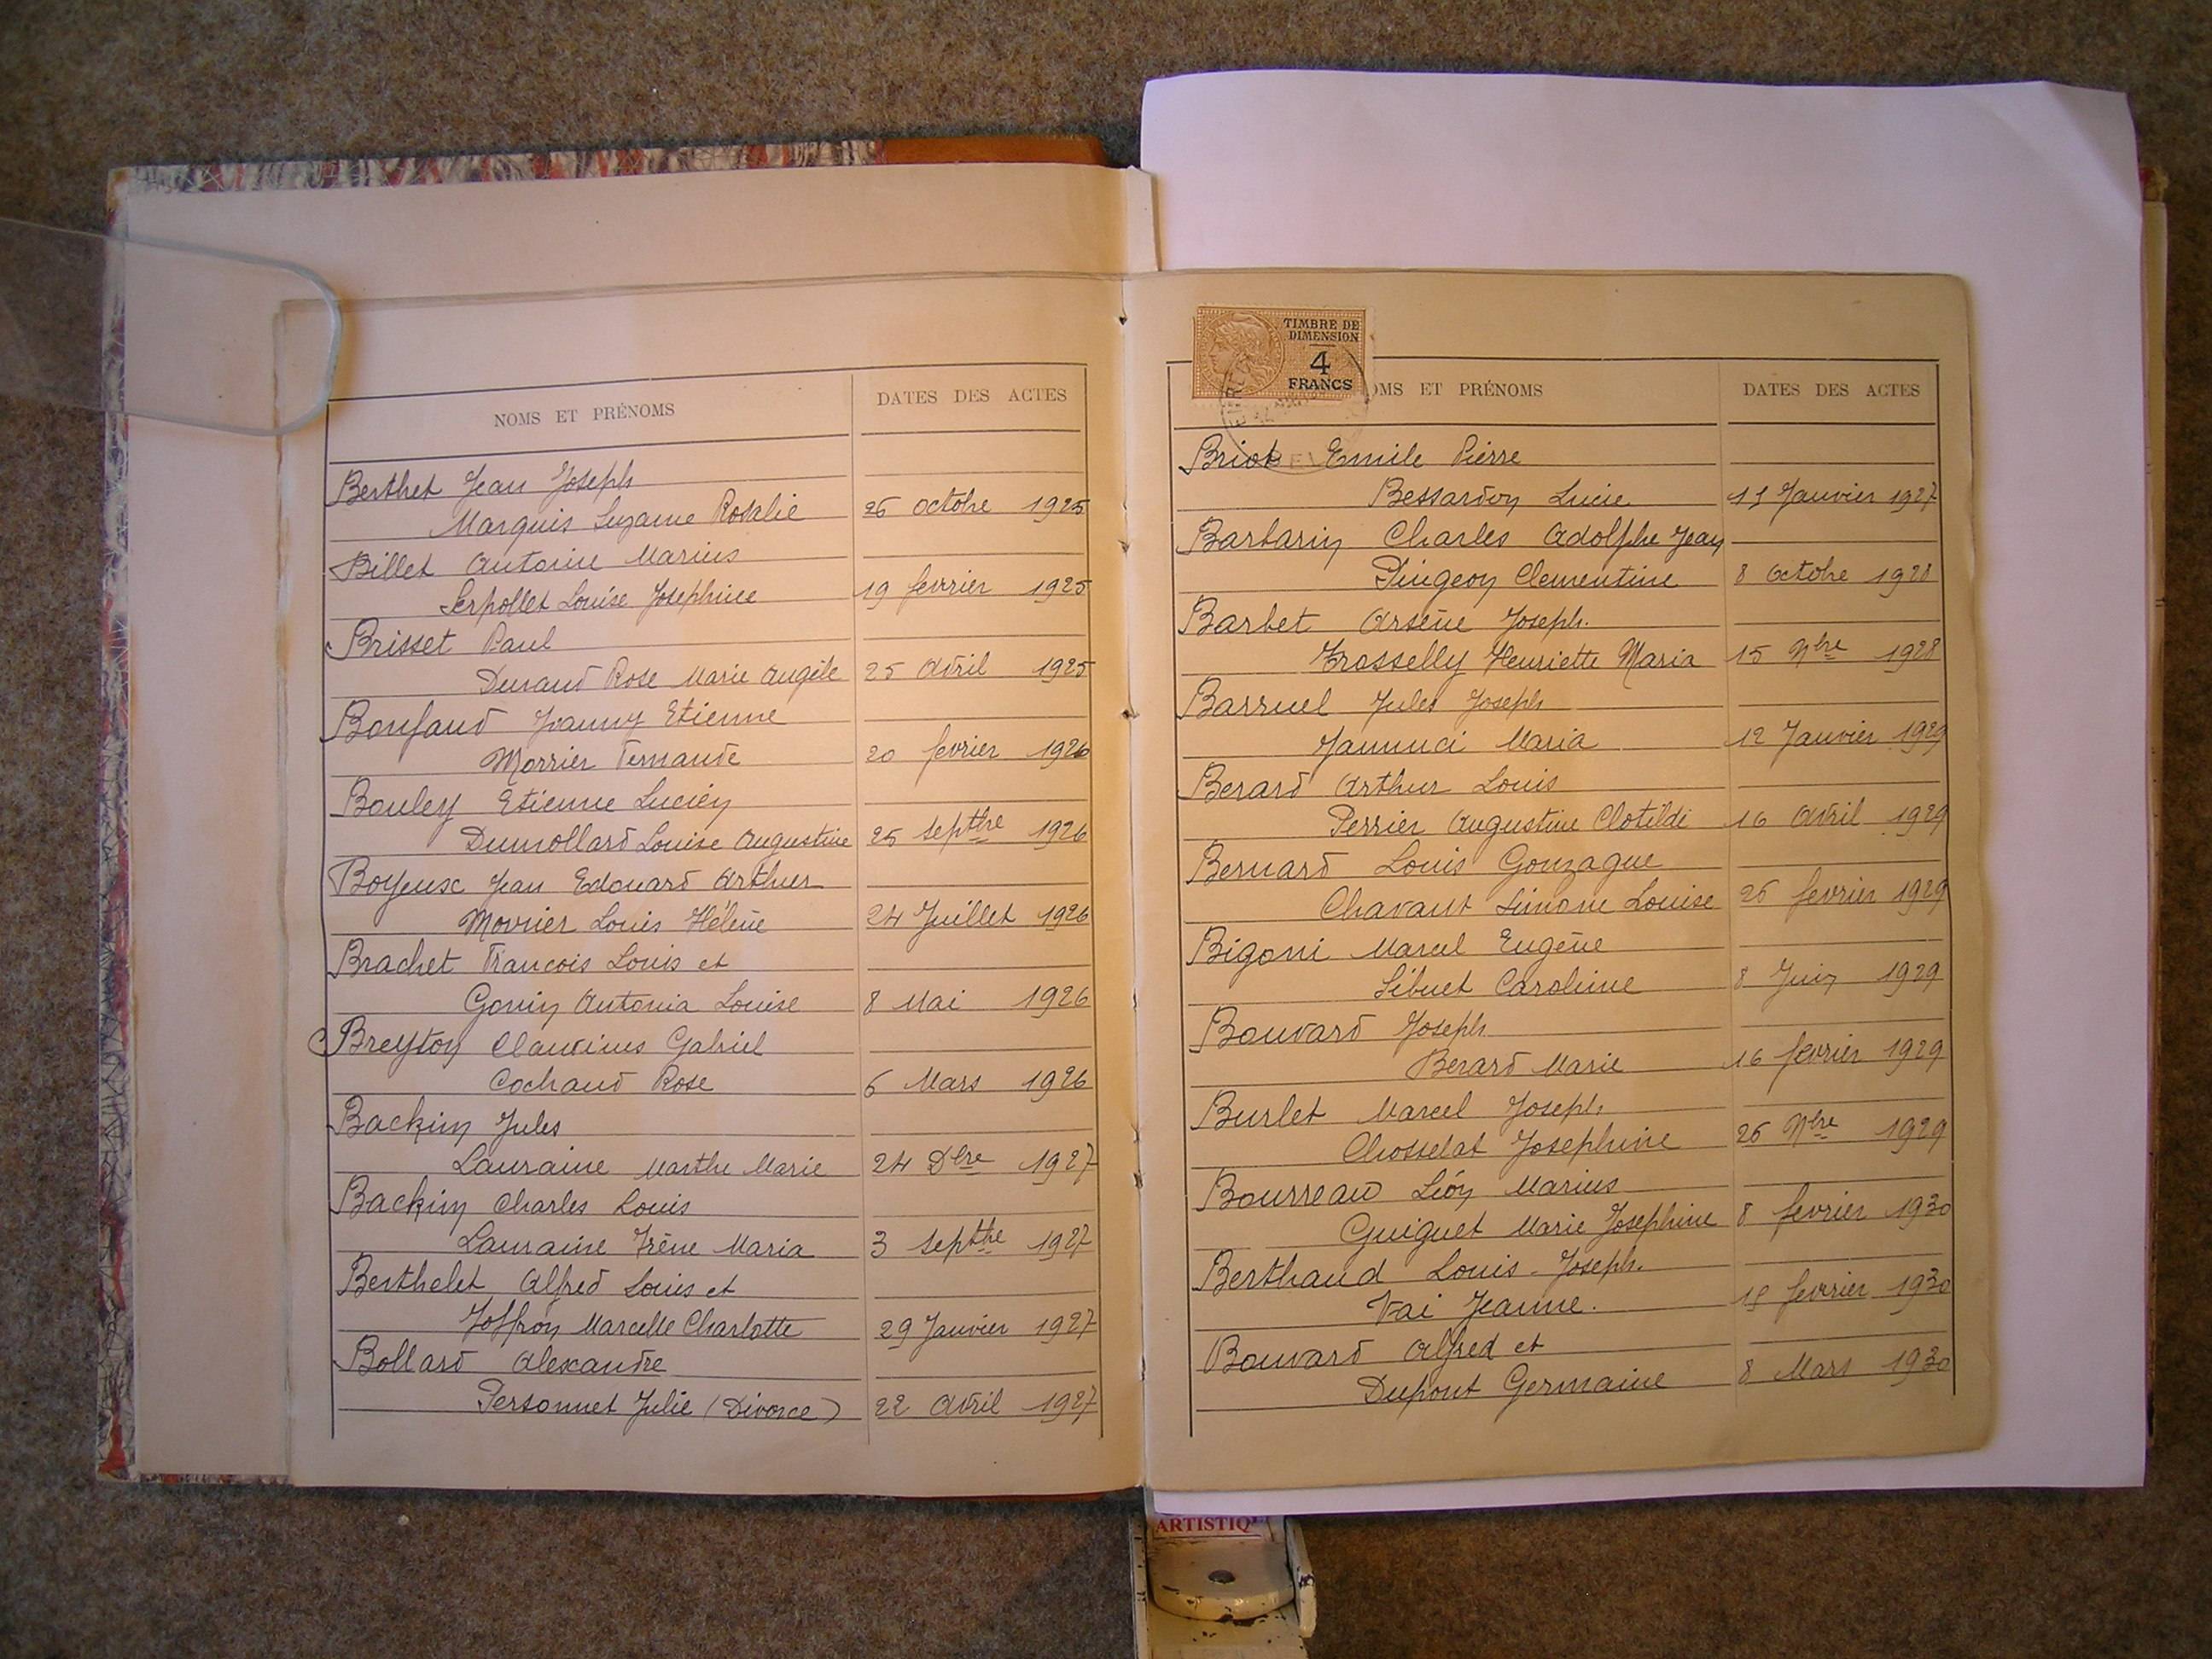 NOMS ET PRÉNOMS DATES DES ACTES
Berthet Jean Joseph
Marquis Suzanne Rosalie 26 octobre 1925
Billet Antoine Marius
Serpollet Louise Josephine 19 fevrier 1925
Brisset Paul
Durand Rose Marie Angèle 25 Avril 1925
Bonfand Joanny Etienne
Morrier Fernande 20 fevrier 1926
Bouley Etienne Lucien
Dumollard Louise Augustine 25 septbre 1926
Boyeux Jean Edouard Arthur
Movrier Louis Hélène 24 Juillet 1926
Brachet Francois Louis et
Gonin Antonia Louise 8 Mai 1926
Breyton Claudius Gabriel
Cochaud Rose 6 Mars 1926
Backin Jules
Lauraine Marthe Marie 24 Dbre 1927
Backin Charles Louis
Lauraine Irène Maria 3 septbre 1927
Berthelet Alfred Louis et
Joffroy Marcelle Charlotte 29 Janvier 1927
Bollard Alexandre
Personnet Julie (Divorce) 22 Avril 1927
TIMBRE DE
DIMENSION
4
FRANCS
OMS ET PRÉNOMS DATES DES ACTES
Briot Emile Pierre
Bessardon Lucie 11 Janvier 1927
Barbarin Charles Adolphe Jean
Pingeon Clementine 8 Octobre 1928
Barbet Arsène Joseph.
Trosselly Henriette Maria 15 Nbre 1928
Barruel Jules Joseph
Jannuci Maria 12 Janvier 1929
Berard Arthur Louis
Perrier Augustine Clotilde 16 Avril 1929
Bernard Louis Gonzague
Chavant Simone Louise 26 fevrier 1929
Bigoni Marcel Eugène
Sébuet Caroline 8 Juin 1929
Bouvard Joseph
Berard Marie 16 fevrier 1929
Burlet Marcel Joseph
Chosselat Josephine 26 Nbre 1929
Bourreau Léon Marius
Guiguet Marie Josephine 8 fevrier 1930
Berthaud Louis-Joseph.
Vai Jeanne. 15 fevrier 1930
Bouvard Alfred et
Dupont Germaine 8 Mars 1930
ARTISTIQ